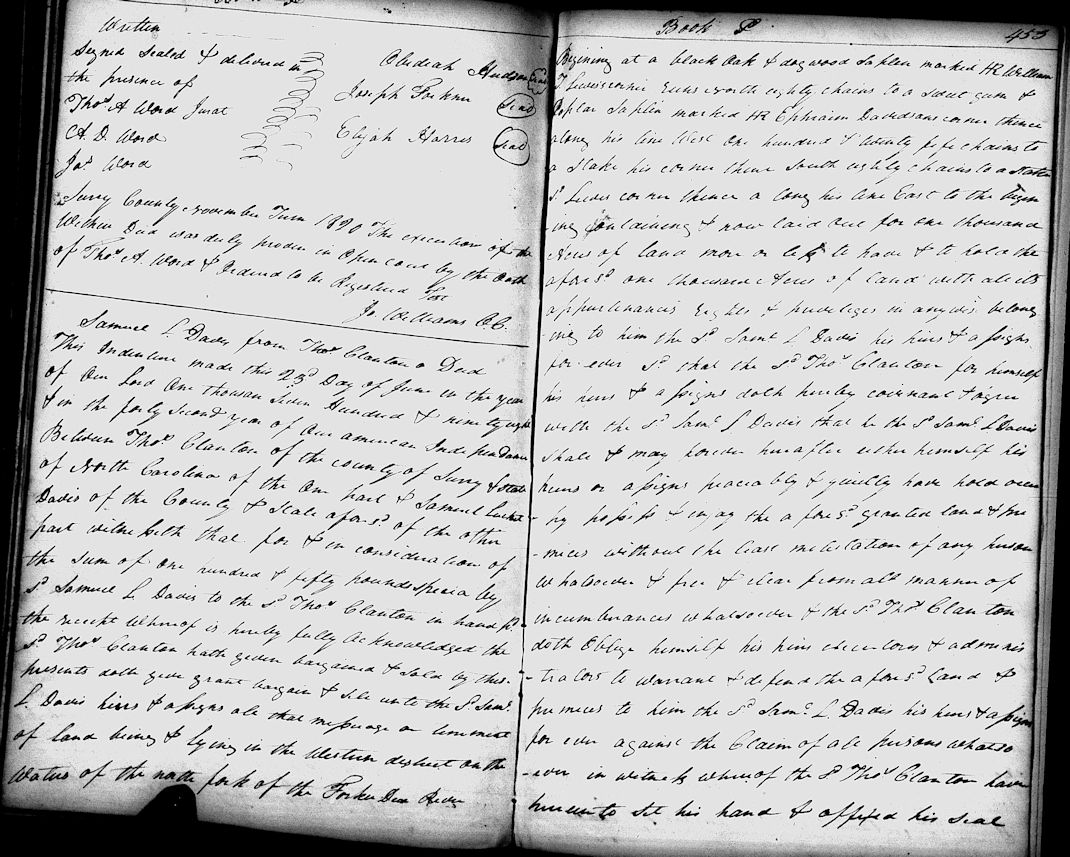 Written
Signed Sealed & delivered in
the presence of
Thos A Word Jurat
A. D. Word
Jas Word
Obediah Hudson Seal
Joseph Forkner Seal
Elijah Harris Seal
Surry County November Term 1800 The execution of the
Within Deed was duly proven in Open court by the oath
of Thos A. Word & Ordered to be Registered Test
Jo Williams CC.
Samuel L. Davis from Thos Clanton a Deed
This Indenture made this 23d Day of June in the year
of Our Lord One thousan Seven Hundred & ninety eight
& in the forty Second year of Our american Independance
Between Thos Clanton of the county of Surry & state
of North Carolina of the One part & Samuel
Davis of the County & State afores'd of the other
part witnesseth that for & in consideration of
the sum of one hundred & fifty pounds specia by
Sd Samuel L Davis to the Sd Thos Clanton in hand pd
the receipt whereof is hereby fully acknowledged the
Sd Thos Clanton hath given bargained & Sold by thes
presents doth give grant bargain & sell unto the Sd Saml
L Davis heirs & assigns all that messuage or tennement
of land being & lying in the Western district on the
waters of the north fork of the Forke Dear River
Book
453
Begining at a black Oak & dogwood Saplin marked HR William
T Lewis corner runs north eighty chains to a sweet gum &
poplar Saplin marked HR Ephraim Davidsons corner thence
along his line West One hundred & twenty five chains to
a Stake his corner thence South eighty chains to a Stake
Sd Lewis corner thence a long his line East to the begin
ing Containing & now laid out for one thousand
Acres of land more or less to have & to hold the
afores'd one thousand Acres of land with all its
appurtenances rights & priveleges in anywise belong
ing to him the Sd Saml L Davis his heirs & assigns
for ever Sd that the Sd Thos Clanton for himself
his heirs & assigns doth hereby covenant & agree
with the Sd Saml L Davis that he the Sd Saml L Davis
Shall & may forever hereafter either himself his
heirs or assigns peaciably & quietly have hold occu
py possess & enjoy the afores'd granted land & pre
-mices without the least molistation of any person
whatsoever & free & clear from all manner of
incumberances whatsoever & the Sd Thos Clanton
doth Oblige himself his heirs executors & adminis
-trators to warrant & defend the afores'd Land &
premices to him the Sd Saml L. Davis his heirs & assigns
for ever against the Claim of all persons whatso
-ever in witness whereof the Sd Thos Clanton have
hereunto Set his hand & affixed his seal